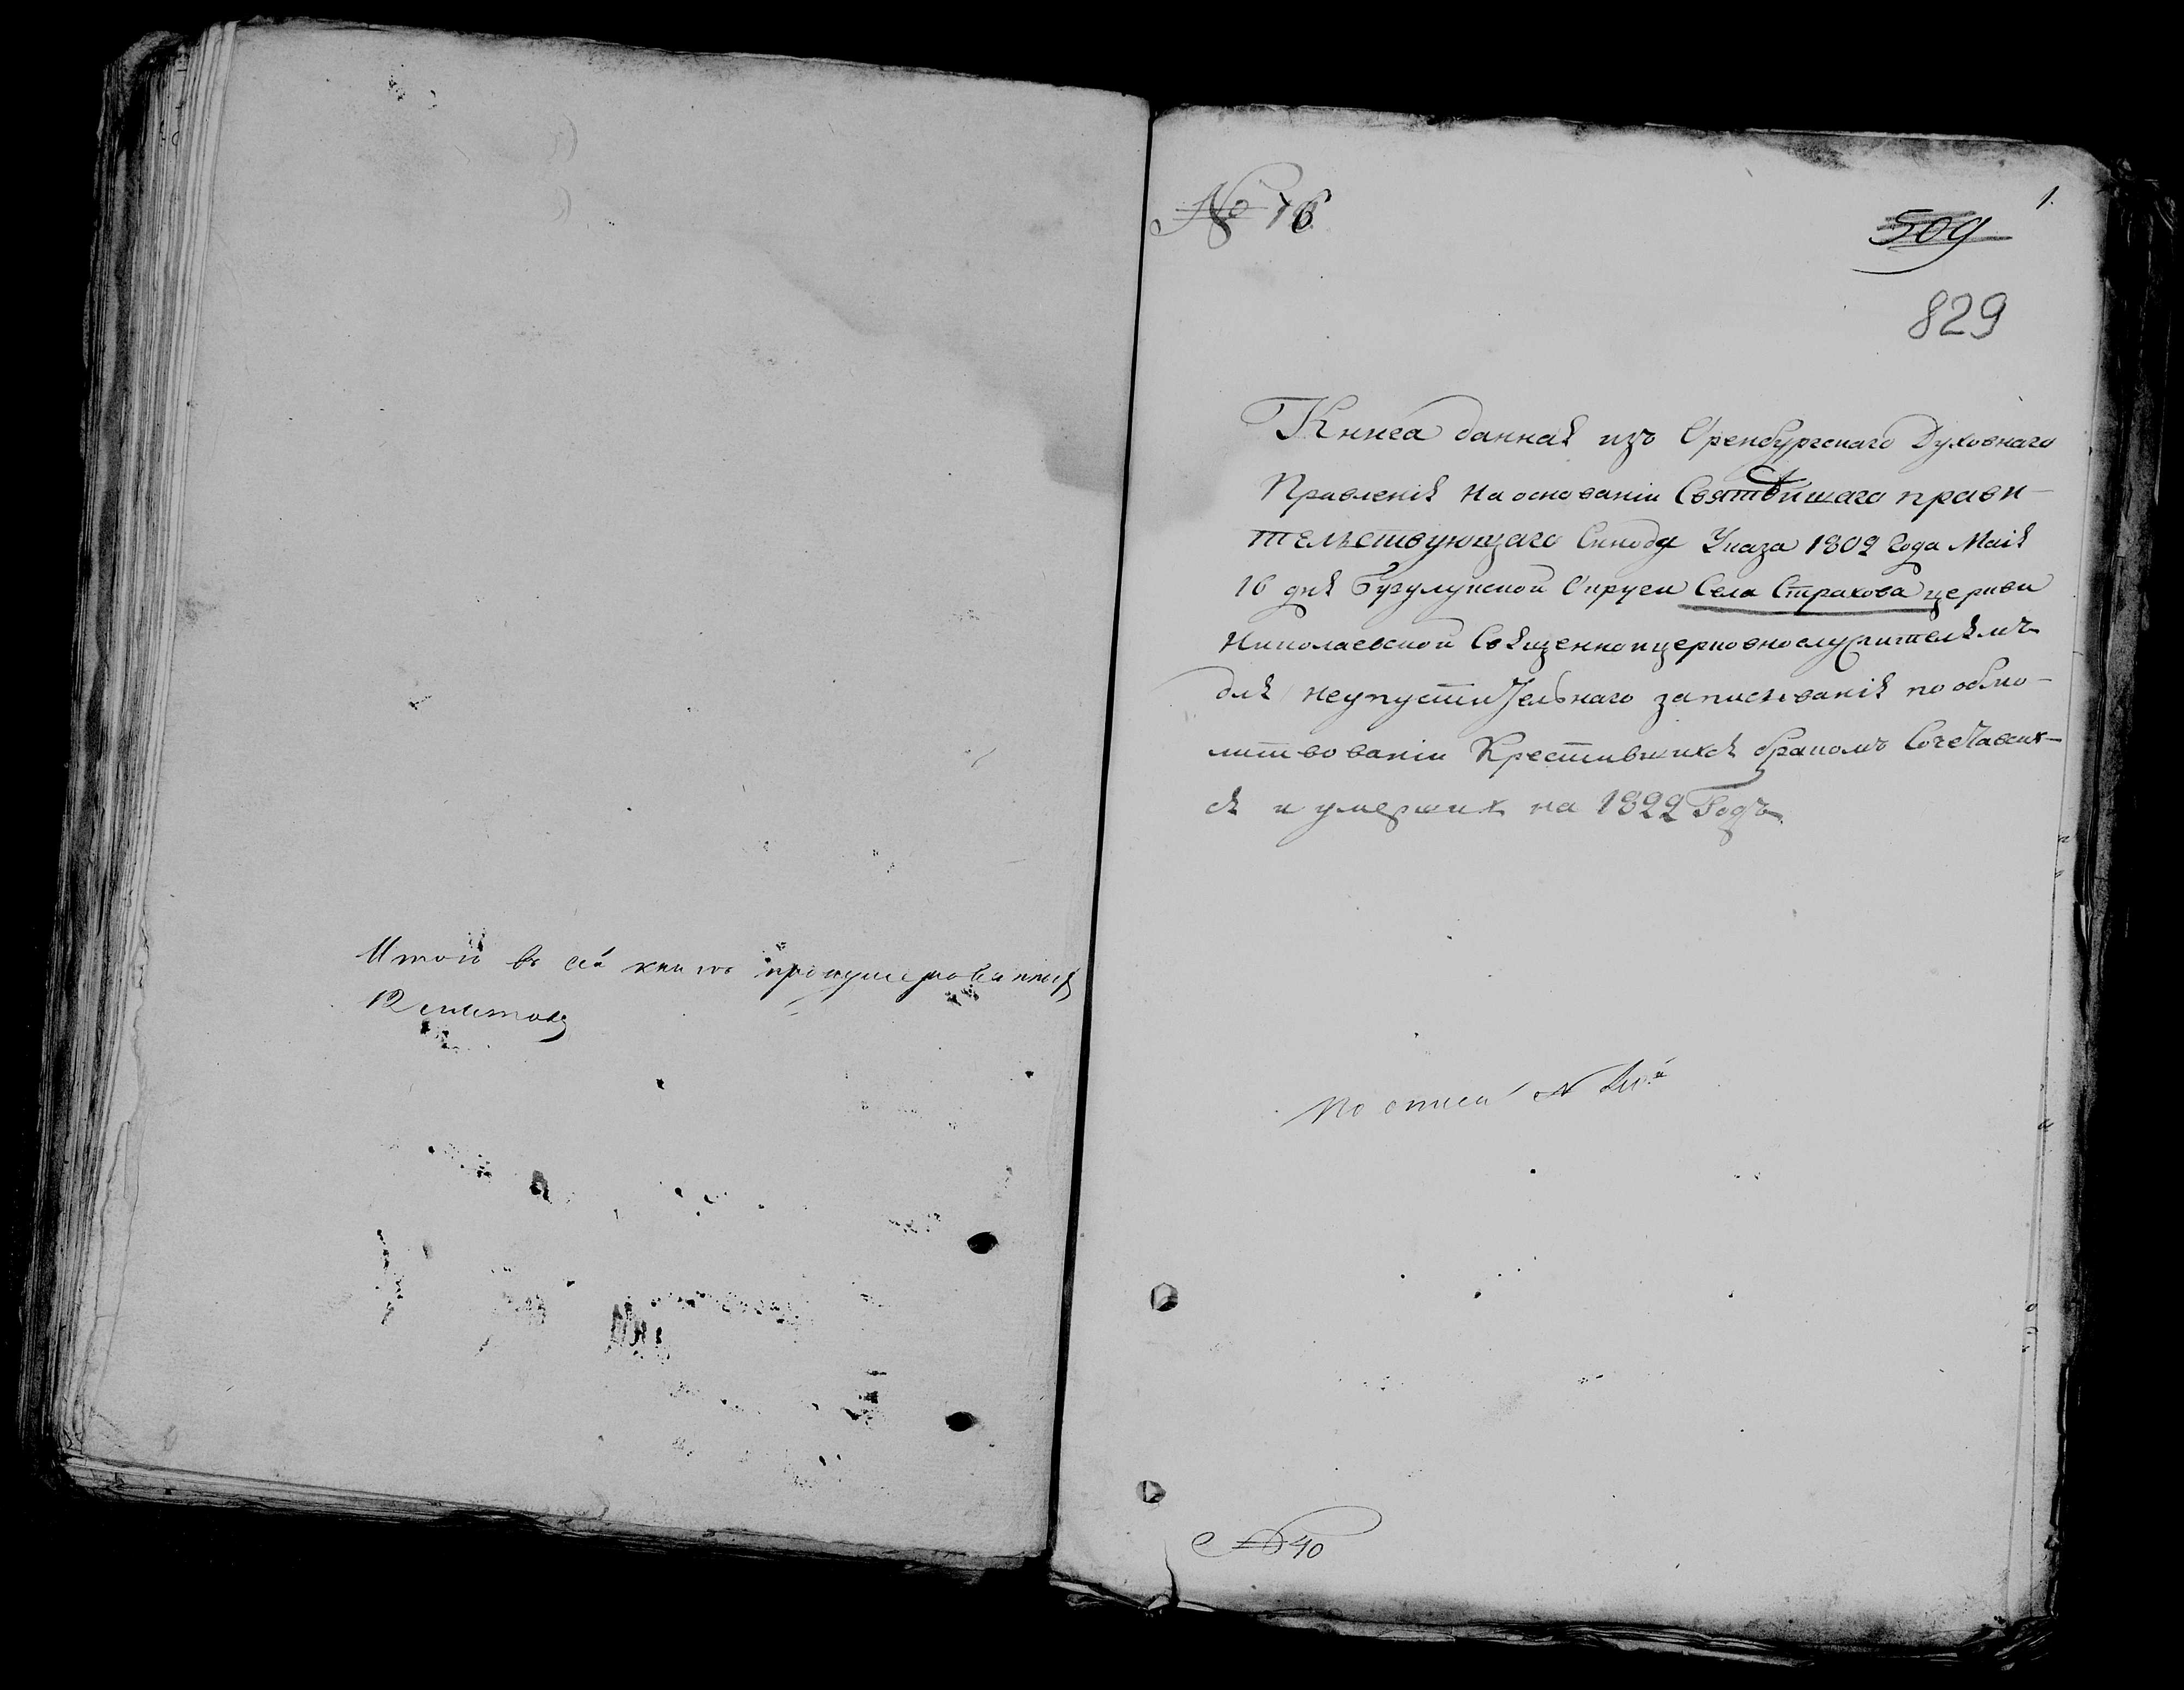 Итого в сей книге пронумерованных
12 листовъ
№ 76
1.
509
829
Книга данная изъ Оренбургскаго Духовнаго
Правленія На основаніи Святѣйшаго прави-
тельствующаго Синода Указа 1802 Года Маія
16 дня Бугулунской Округи Села Страхова церкви
Николаевской Священноицерковнослужителямъ
для неупустительнаго записыванія по обмо-
литвованіи Крестившихся бракомъ Сочетавших-
ся и умерших на 1822 Годъ
По описи №
№ 40